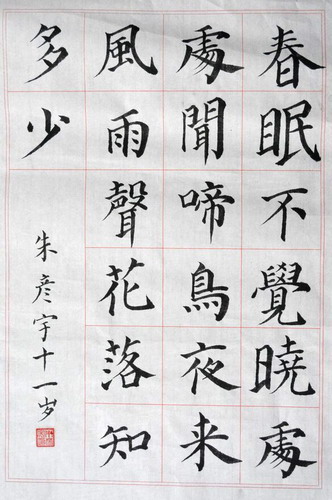 春眠不覺曉處
處聞啼鳥夜来
風雨聲花落知
多少
朱彦宇十一岁